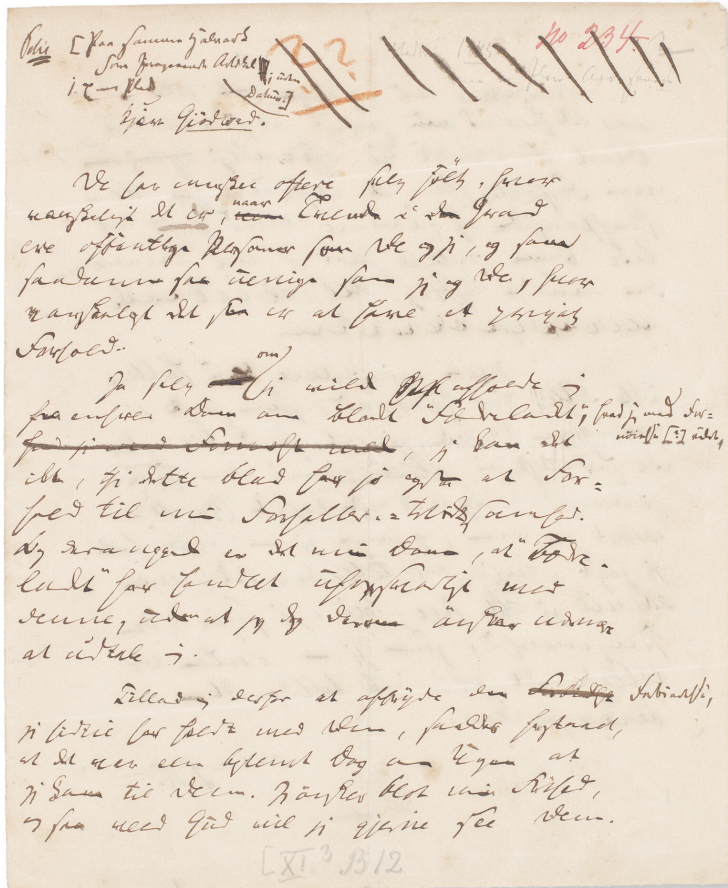 No 234
[Paa samme Halvark
som foregaaende Artikel, uden
Datum.]
Kjere Giödwad.
De har maaskee oftere selv følt, hvor
vanskeligt det er, naar Tvende i den Grad
ere offentlige Personer som De og jeg, og som
saadanne saa uenige som jeg og De, hvor
vanskeligt det saa er at have et privat
Forhold.
Ja selv om jeg vilde afholde mig
fra enhver Dom om Bladet "Fædrelandet", hvad jeg med For-
hvad jeg med Fornøielse, jeg kan det
ikke, thi dette Blad har jo ogsaa et For=
hold til min Forfatter-Virksomhed.
Og desangaaende er det min Dom, at "Fædre-
landet" har handlet uforsvarligt mod
denne, uden at jeg dog derom ønsker videre
at udtale mig.
Tillad mig derfor at afbryde den Forbindelse,
jeg hidtil har havt med Dem, saaledes forstaaet,
at det var een bestemt Dag om Ugen at
jeg kom til Dem. Jeg ønsker blot min Frihed,
og saa med Gud vil jeg gjerne see Dem.
[XI 3 B 12